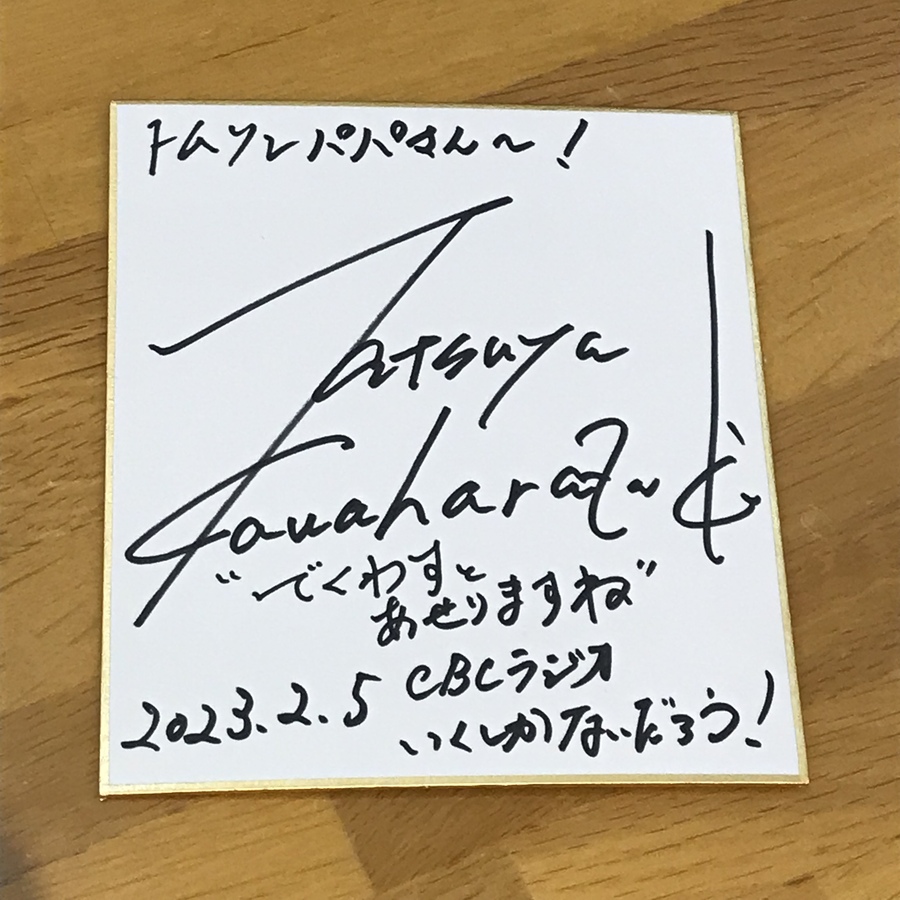 トムソンパパさん〜!
Tatsuya
Kawahara
"でくわすと
あせりますね"
2023.2.5 CBCラジオ
いくしかないだろう!